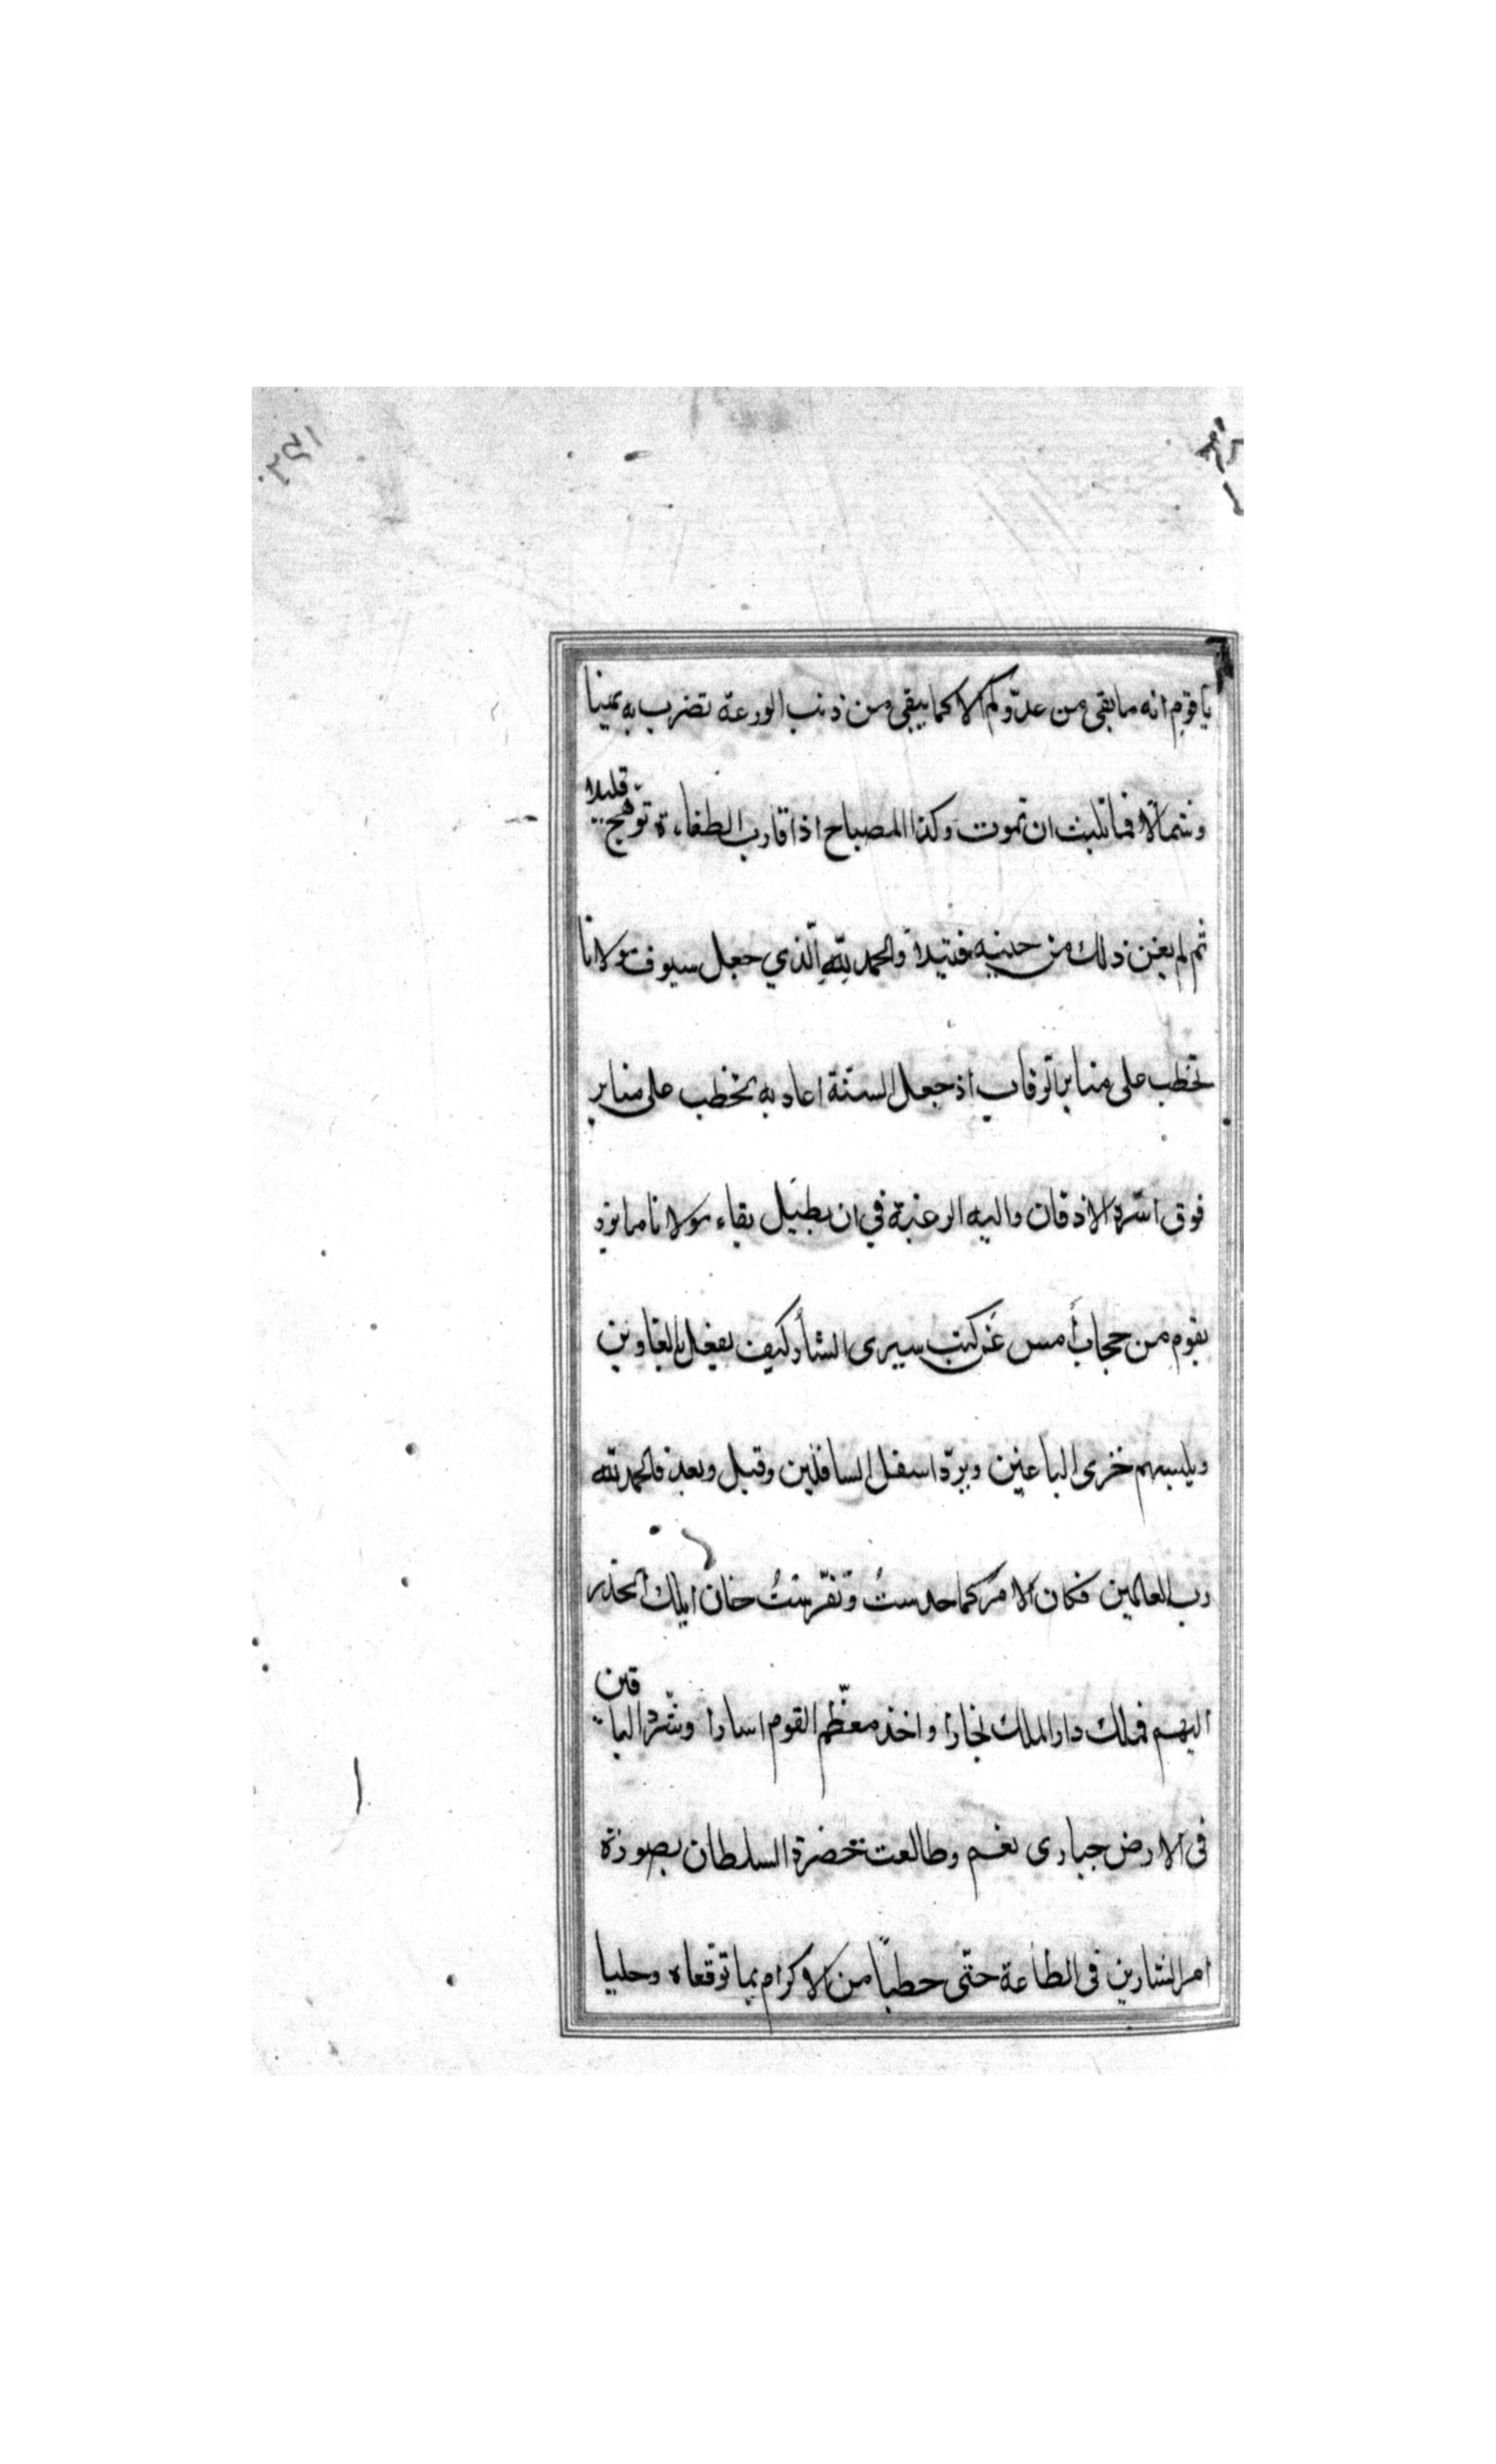 يا قوم انه ما بقى من عدوّكم الا كما يبقى من ذنب الوزغة تضرب به يمينا
وشمالا فما تلبث ان تموت وكذا المصباح اذا قارب انطفاءة توهج قليلا
ثم لم يغن ذلك من حينه فتيلا والحمد لله الّذي جعل سيوف مولانا
تخطب على منابر الرقاب اذ جعل السنة اعاديه تخطب على منابر
فوق اسّرة الاذقان واليه الرغبة في ان يطيل بقاء مولانا
يقوم من حجاب أمس عن كتب سيرى الشأو كيف يفعل بالغاوين
ويلبسهم خزى الباغين ويردّ اسفل السافلين وقيل وبعد فالحمد لله
رب العالمين فكان الامر كما حدستُ وتفرّستُ خان ايلك انحدر
اليهم فملك دار الملك بخارا واخذ معظم القوم اسارا وشرّد الباقين
في الارض حيارى نعم وطالعت حضرة السلطان بصورة
امر الشارين في الطاعة حتّى حطبا من الاكرام بما توقّعاه وحليا